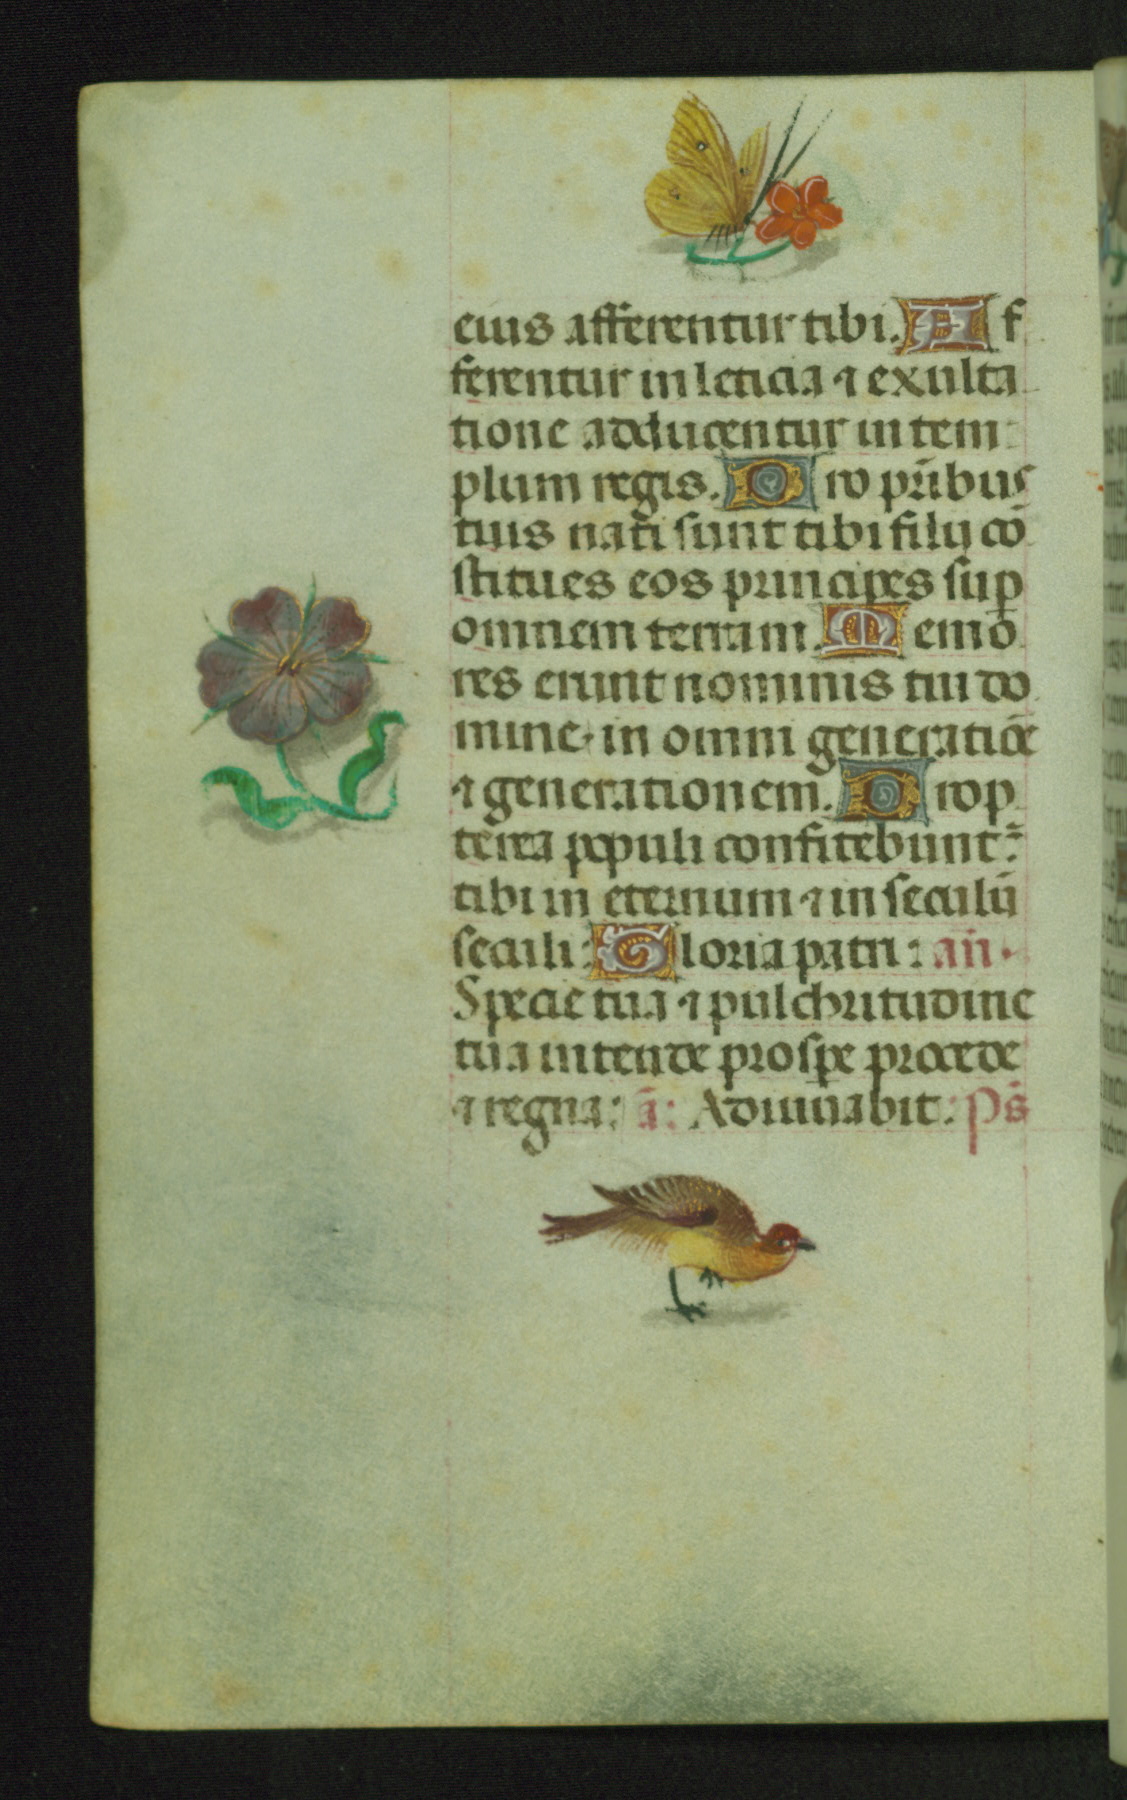 eius afferentur tibi. Af
ferentur in leticia ⁊ exulta
tione adducentur in tem
plum regis. Pro pr̄ibus
tuis nati sunt tibi filij cō
stitues eos principes suꝑ
omnem terram. Memo
res erunt nominis tui do
mine· in omni generatiōe
⁊ generationem. Prop
terea populi confitebunt᷑
tibi in eternum ⁊ in seculū
seculi: Gloria patri: an̄·
Specie tua ⁊ pulchritudine
tua intende prospe procede
⁊ regna: ā: Adiuuabit: Ps̄